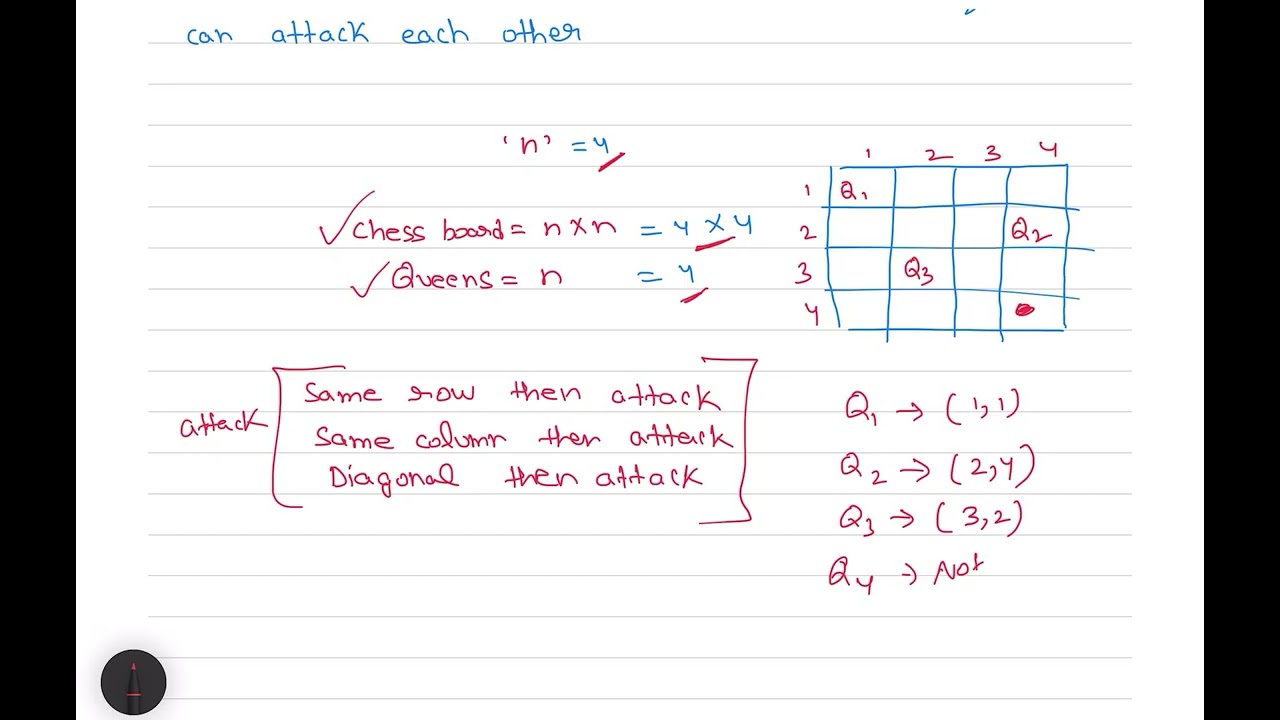 can attack each other
'n' = 4
Chess board = n x n = 4 x 4
Queens = n = 4
1 2 3 4
1 Q1
2 Q2
3 Q3
4
attack
Same row then attack
Same column then attack
Diagonal then attack
Q1 → (1,1)
Q2 → (2,4)
Q3 → (3,2)
Q4 → Not